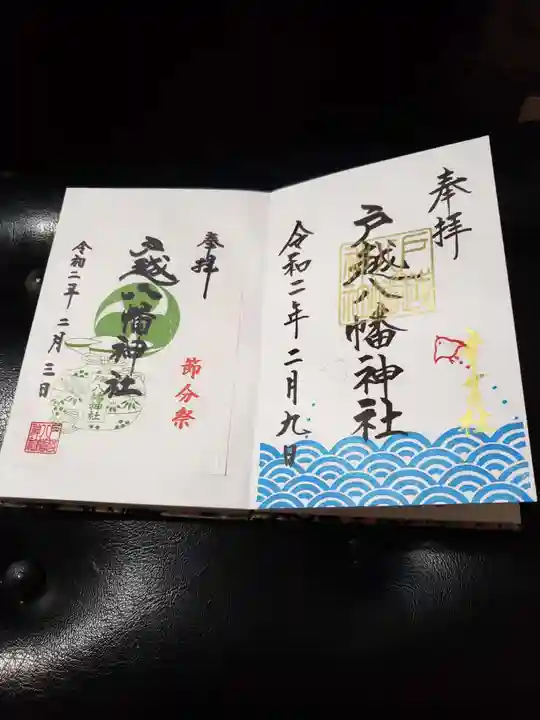 奉拝
戸越八幡神社
令和二年二月九日
奉拝
節分祭
戸越八幡神社
八幡神社
令和二年二月三日